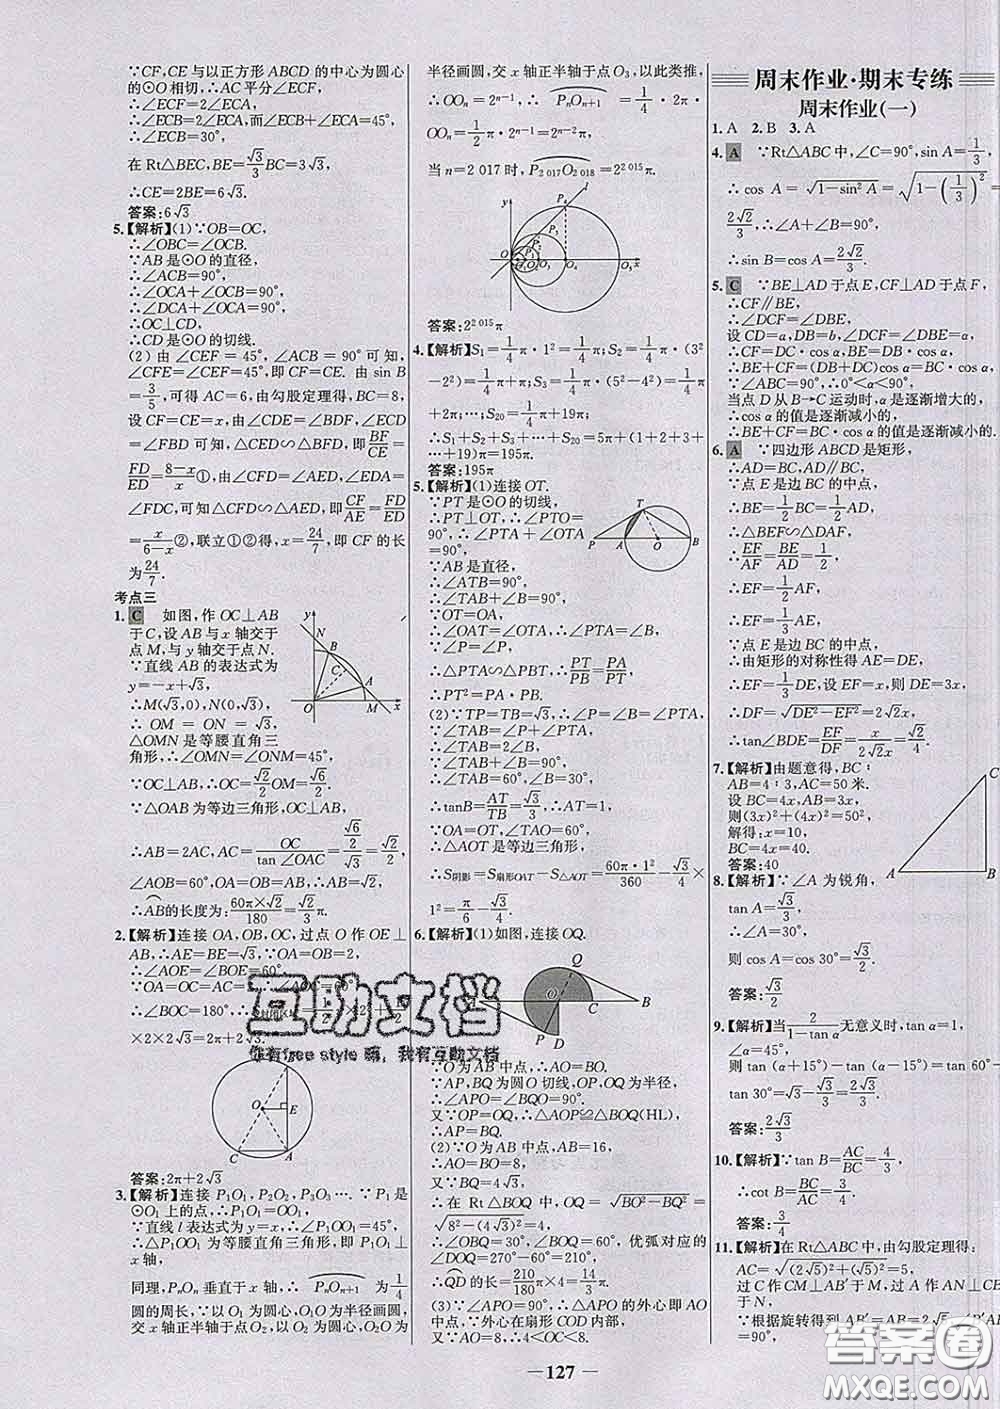 ∵CF,CE与以正方形ABCD的中心为圆心
的⊙O相切,∴AC平分∠ECF,
∴∠ECF=2∠ECA,
∴∠ECB=2∠ECA,而∠ECB+∠ECA=45°,
∴∠ECB=30°,
在Rt△BEC,BE=√3/3BC=3√3,
∴CE=2BE=6√3.
答案:6√3
5.【解析】(1)∵OB=OC,
∴∠OBC=∠OCB.
∵AB是⊙O的直径,
∴∠ACB=90°,
∴∠OCA+∠OCB=90°,
∴∠DCA+∠OCA=90°,
∴OC⊥CD,
∴CD是⊙O的切线.
(2)由∠CEF=45°,∠ACB=90°可知,
∠CFE=∠CEF=45°,即CF=CE.由sin B
=3/5,可得AC=6,由勾股定理得,BC=8,
设CF=CE=x,由∠DCE=∠BDF,∠ECD
=∠FBD可知,△CED∽△BFD,即BF/CE=
FD/ED=(8−x)/x①,由∠CFD=∠AED,∠EAD=
∠FDC,可知△CFD∽△AED,即CF/AE=FD/ED
=x/(6−x)②,联立①②得,x=24/7,即CF的长
为24/7.
考点三
1. C 如图,作OC⊥AB
于C,设AB与x轴交于
点M,与y轴交于点N.
∵直线AB的表达式为
y=−x+√3,
∴M(√3,0),N(0,√3),
∴OM=ON=√3,
△OMN是等腰直角三
角形,∴∠OMN=∠ONM=45°,
∵OC⊥AB,∴OC=√2/2OM=√6/2.
∵△OAB为等边三角形,OC⊥AB,
∴AB=2AC,AC=OC/tan∠OAC=(√6/2)/√3=√2/2,
∠AOB=60°,OA=OB=AB=√2,
∴AB的长度为:60π×√2/180=√2/3π.
2.【解析】连接OA,OB,OC,过点O作OE⊥
AB,∴AE=BE=√3.∵OA=OB=2,
∴∠AOE=∠BOE=60°
∴∠BOC=180°,
×2×2√3=2π+2√3.
答案:2π+2√3
3.【解析】连接P1O1,P2O2,P3O3….∵P1是
⊙O1上的点,∴P1O1=OO1,
∵直线l表达式为y=x,∴∠P1OO1=45°,
∴△P1OO1为等腰直角三角形,即P1O1⊥x
轴,
同理,PnOn垂直于x轴,∴PnOn+1为1/4
圆的周长,∵以O1为圆心,O1O为半径画圆,
交x轴正半轴于点O2,以O2为圆心,O2O为
半径画圆,交x轴正半轴于点O3,以此类推,
∴OOn=2^(n−1),∴PnOn+1=1/4·2π·
OOn=1/2π·2^(n−1)=2^(n−2)π,
当n=2 017时,P2 017O2 018=2^2 015π.
答案:2^2 015π
4.【解析】S1=1/4π·1²=1/4π;S2=1/4π·(3²
−2²)=1/4π+π;S3=1/4π·(5²−4²)=1/4π
+2π;…;S20=1/4π+19π;
∴S1+S2+S3+…+S20=5π+(1+2+3+
…+19)π=195π.
答案:195π
5.【解析】(1)连接OT.
∵PT是⊙O的切线,
∴PT⊥OT,∴∠PTO=
90°,∴∠PTA+∠OTA
=90°,
∵AB是直径,
∴∠ATB=90°,
∴∠TAB+∠B=90°,
∵OT=OA,
∴∠OAT=∠OTA,∴∠PTA=∠B,
∵∠P=∠P,
∴△PTA∽△PBT,∴PT/PB=PA/PT,
∴PT²=PA·PB.
(2)∵TP=TB=√3,∴∠P=∠B=∠PTA,
∵∠TAB=∠P+∠PTA,
∴∠TAB=2∠B,
∵∠TAB+∠B=90°,
∴∠TAB=60°,∠B=30°,
∴tanB=AT/TB=√3/3,∴AT=1,
∵OA=OT,∠TAO=60°,
∴△AOT是等边三角形,
∴S阴影=S扇形OAT−S△AOT=60π·1²/360−√3/4×
1²=π/6−√3/4.
6.【解析】(1)如图,连接OQ.
∵O为AB中点,∴AO=BO,
∵AP,BQ为圆O切线,OP,OQ为半径,
∴∠APO=∠BQO=90°.
又∵OP=OQ,∴△AOP≌△BOQ(HL),
∴AP=BQ.
(2)∵O为AB中点,AB=16,
∴AO=BO=8,
又∵BQ=4√3,
∴在Rt△BOQ中,OQ=√(BO²−BQ²)=
√(8²−(4√3)²)=4,
∴∠OBQ=30°,∠BOQ=60°,优弧对应的
∠DOQ=270°−60°=210°,
∴QD的长=210/180π×4=14/3π.
(3)∵∠APO=90°,∴△APO的外心即AO
中点,∵外心在扇形COD内部,
又∵AO=8,∴4<OC<8.
周末作业·期末专练
周末作业(一)
1. A 2. B 3. A
4. A ∵Rt△ABC中,∠C=90°,sin A=1/3,
∴cos A=√(1−sin²A)=√(1−(1/3)²)=
2√2/3,∵∠A+∠B=90°,
∴sin B=cos A=2√2/3.
5. C ∵BE⊥AD于点E,CF⊥AD于点F,
∴CF∥BE,
∴∠DCF=∠DBE,
设CD=a,DB=b,∠DCF=∠DBE=α,
∴CF=DC·cos α,BE=DB·cos α,
∴BE+CF=(DB+DC)cos α=BC·cos α,
∵∠ABC=90°,∴0°<α<90°,
当点D从B→C运动时,α是逐渐增大的,
∴cos α的值是逐渐减小的,
∴BE+CF=BC·cos α的值是逐渐减小的.
6. A ∵四边形ABCD是矩形,
∴AD=BC,AD∥BC,
∵点E是边BC的中点,
∴BE=1/2BC=1/2AD,
∴△BEF∽△DAF,
∴EF/AF=BE/AD=1/2,
∴EF=1/2AF,
∴EF=1/3AE,
∵点E是边BC的中点,
∴由矩形的对称性得AE=DE,
∴EF=1/3DE,设EF=x,则DE=3x,
∴DF=√(DE²−EF²)=2√2x,
∴tan∠BDE=EF/DF=x/(2√2x)=√2/4.
7.【解析】由题意得,BC∶
AB=4∶3,AC=50米.
设BC=4x,AB=3x,
则(3x)²+(4x)²=50²,
解得:x=10,
BC=4x=40.
答案:40
8.【解析】∵∠A为锐角,
tan A=√3/3,
∴∠A=30°,
则cos A=cos 30°=√3/2.
答案:√3/2
9.【解析】当2/(1−tan α)无意义时,tan α=1,
∠α=45°,
则tan(α+15°)−tan(α−15°)=tan 60°−
tan 30°=√3−√3/3=2√3/3.
答案:2√3/3
10.【解析】∵tan B=AC/BC=4/3,
∴cot B=BC/AC=3/4.
答案:3/4
11.【解析】在Rt△ABC中,由勾股定理得:
AC=√((2√5)²+(√5)²)=5,
过C作CM⊥AB′于M,过A作AN⊥CB′
于N,
∵根据旋转得到AB′=AB=
=90°,
127
互助文档
你有free style嘛,我有互助文档
答案圈
MXQE.COM